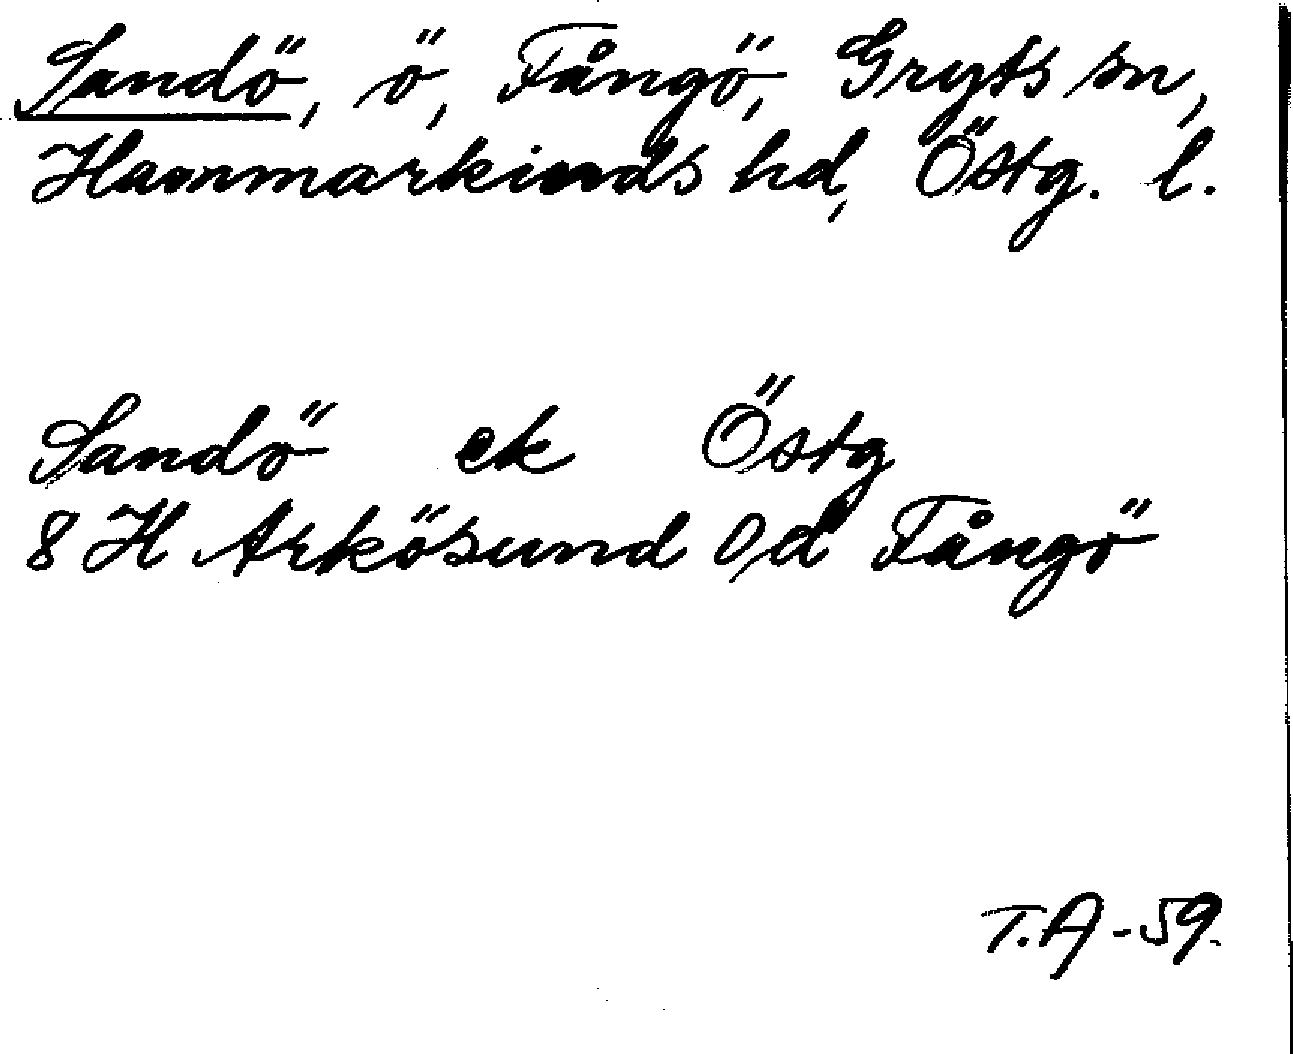 Sandö, ö, Fångö, Gryts sn,
Hammarkinds hd, Östg. l.
Sandö ek Östg
8 H Arkösund 0,d Fångö
T.A-59.